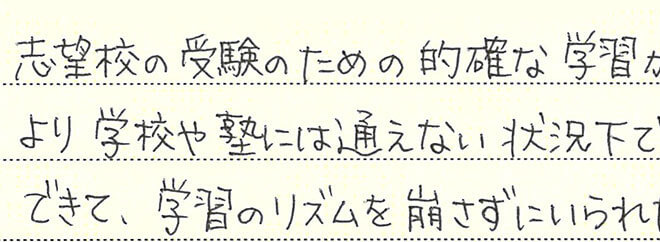 志望校の受験のための的確な学習が
より学校や塾には通えない状況下で
できて、学習のリズムを崩さずにいられた